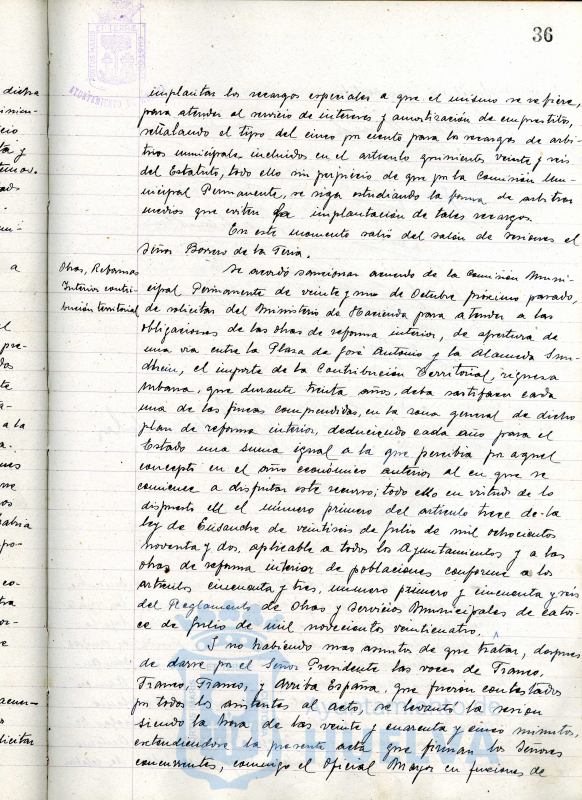 36
implantar los recargos especiales a que el mismo se refiere,
para atender al servicio de intereses y amortización de empréstitos,
señalando el tipo del cinco por ciento para los recargos de arbi-
trios municipales incluidos en el artículo quinientos veinte y seis
del Estatuto, todo ello sin perjuicio de que por la Comisión Mu-
nicipal Permanente, se siga estudiando la forma de arbitrar
medios que eviten la implantación de tales recargos.
En este momento salió del salón de sesiones el
Señor Borrero de la Feria.
Obras, Reformas
Interior contri-
bución territorial
Se acordó sancionar acuerdo de la Comisión Muni-
cipal Permanente de veinte y uno de Octubre próximo pasado,
de solicitar del Ministerio de Hacienda para atender a las
obligaciones de las obras de reforma interior, de apertura de
una via entre la Plaza de José Antonio y la Alameda Sun-
dheim, el importe de la Contribución Territorial, riqueza
urbana, que durante treinta años, deba satisfacer cada
una de las fincas comprendidas, en la zona general de dicho
plan de reforma interior, deduciendo cada año para el
Estado una suma igual a la que percibia por aquel
concepto en el año económico anterior al en que se
comience a disfrutar este recurso; todo ello en virtud de lo
dispuesto en el número primero del artículo trece de la
ley de Ensanche de veintiseis de Julio de mil ochocientos
noventa y dos, aplicable a todos los Ayuntamientos y a las
obras de reforma interior de poblaciones conforme a los
artículos cincuenta y tres, número primero y cincuenta y seis
del Reglamento de Obras y Servicios Municipales de cator-
ce de Julio de mil novecientos veinticuatro.
Y no habiendo mas asuntos de que tratar, despues
de darse por el Señor Presidente las voces de Franco,
Franco, Franco, y Arriba España, que fueron contestados
por todos los asistentes al acto, se levantó la sesion
siendo la hora de las veinte y cuarenta y cinco minutos,
extendiendose la presente acta que firman los Señores
concurrentes, conmigo el Oficial Mayor en funciones de